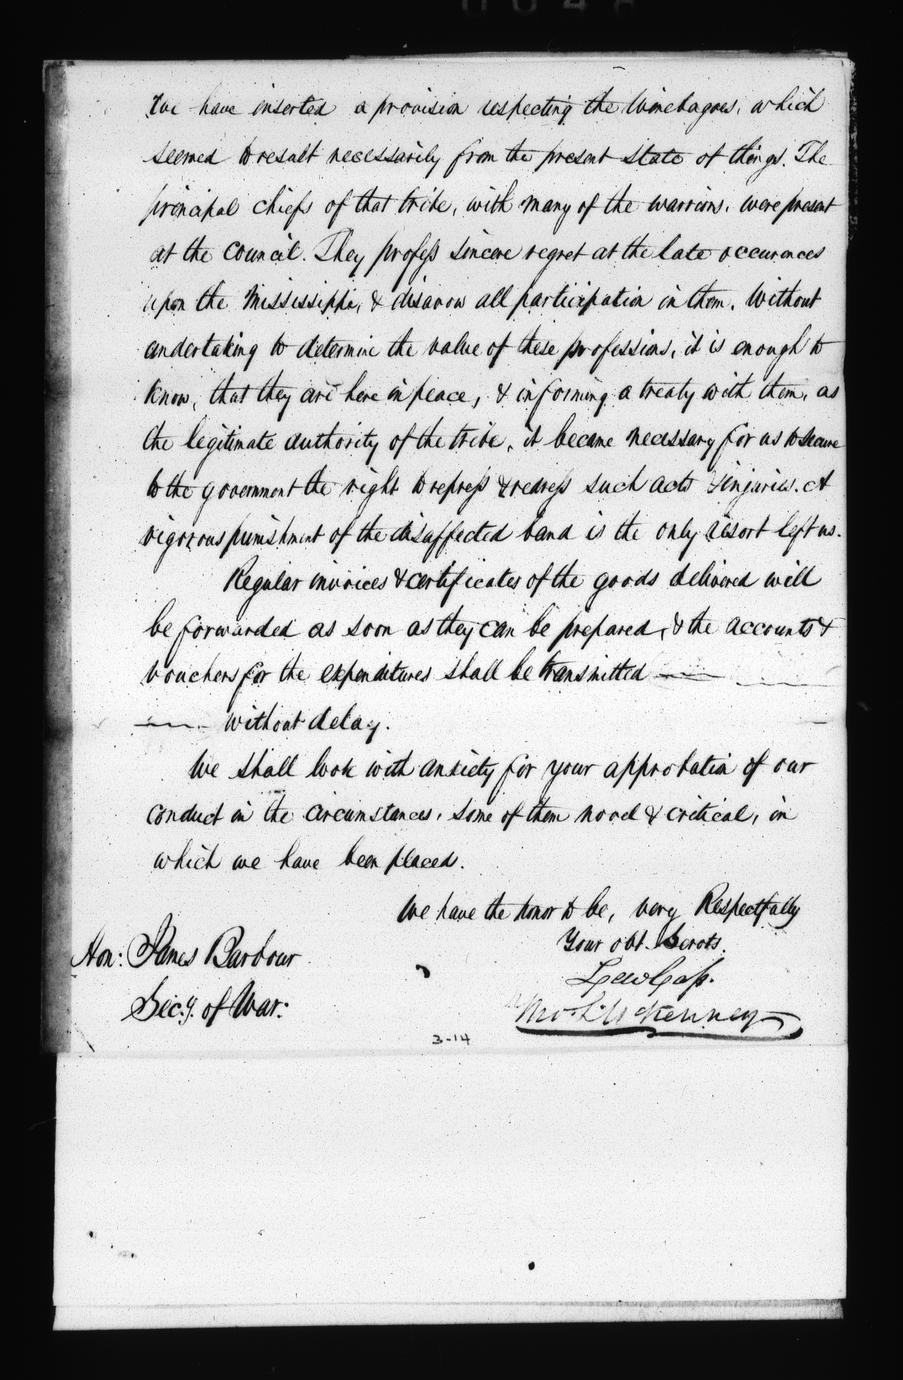 We have inserted a provision respecting the Winebagoes, which
seemed to result necessarily from the present state of things. The
principal chiefs of that tribe, with many of the warriors, were present
at the Council. They profess sincere regret at the late occurences
upon the Mississippi, & disavow all participation in them. Without
undertaking to determine the value of these professions, it is enough to
know, that they are here in peace, & in forming a treaty with them, as
the legitimate authority of the tribe, it became necessary for us to secure
to the government the right to repress & redress such acts & injuries. A
rigorous punishment of the disaffected band is the only resort left us.
Regular invoices & certificates of the goods delivered will
be forwarded as soon as they can be prepared, & the accounts &
vouchers for the expenditures shall be transmitted
without delay.
We shall look with anxiety for your approbation of our
conduct in the circumstances, some of them novel & critical, in
which we have been placed.
We have the honor to be, very Respectfully
Your obt. Servts.
Hon: James Barbour
Lew Cass.
Secy. of War:
Tho. L. McKenney
3-14